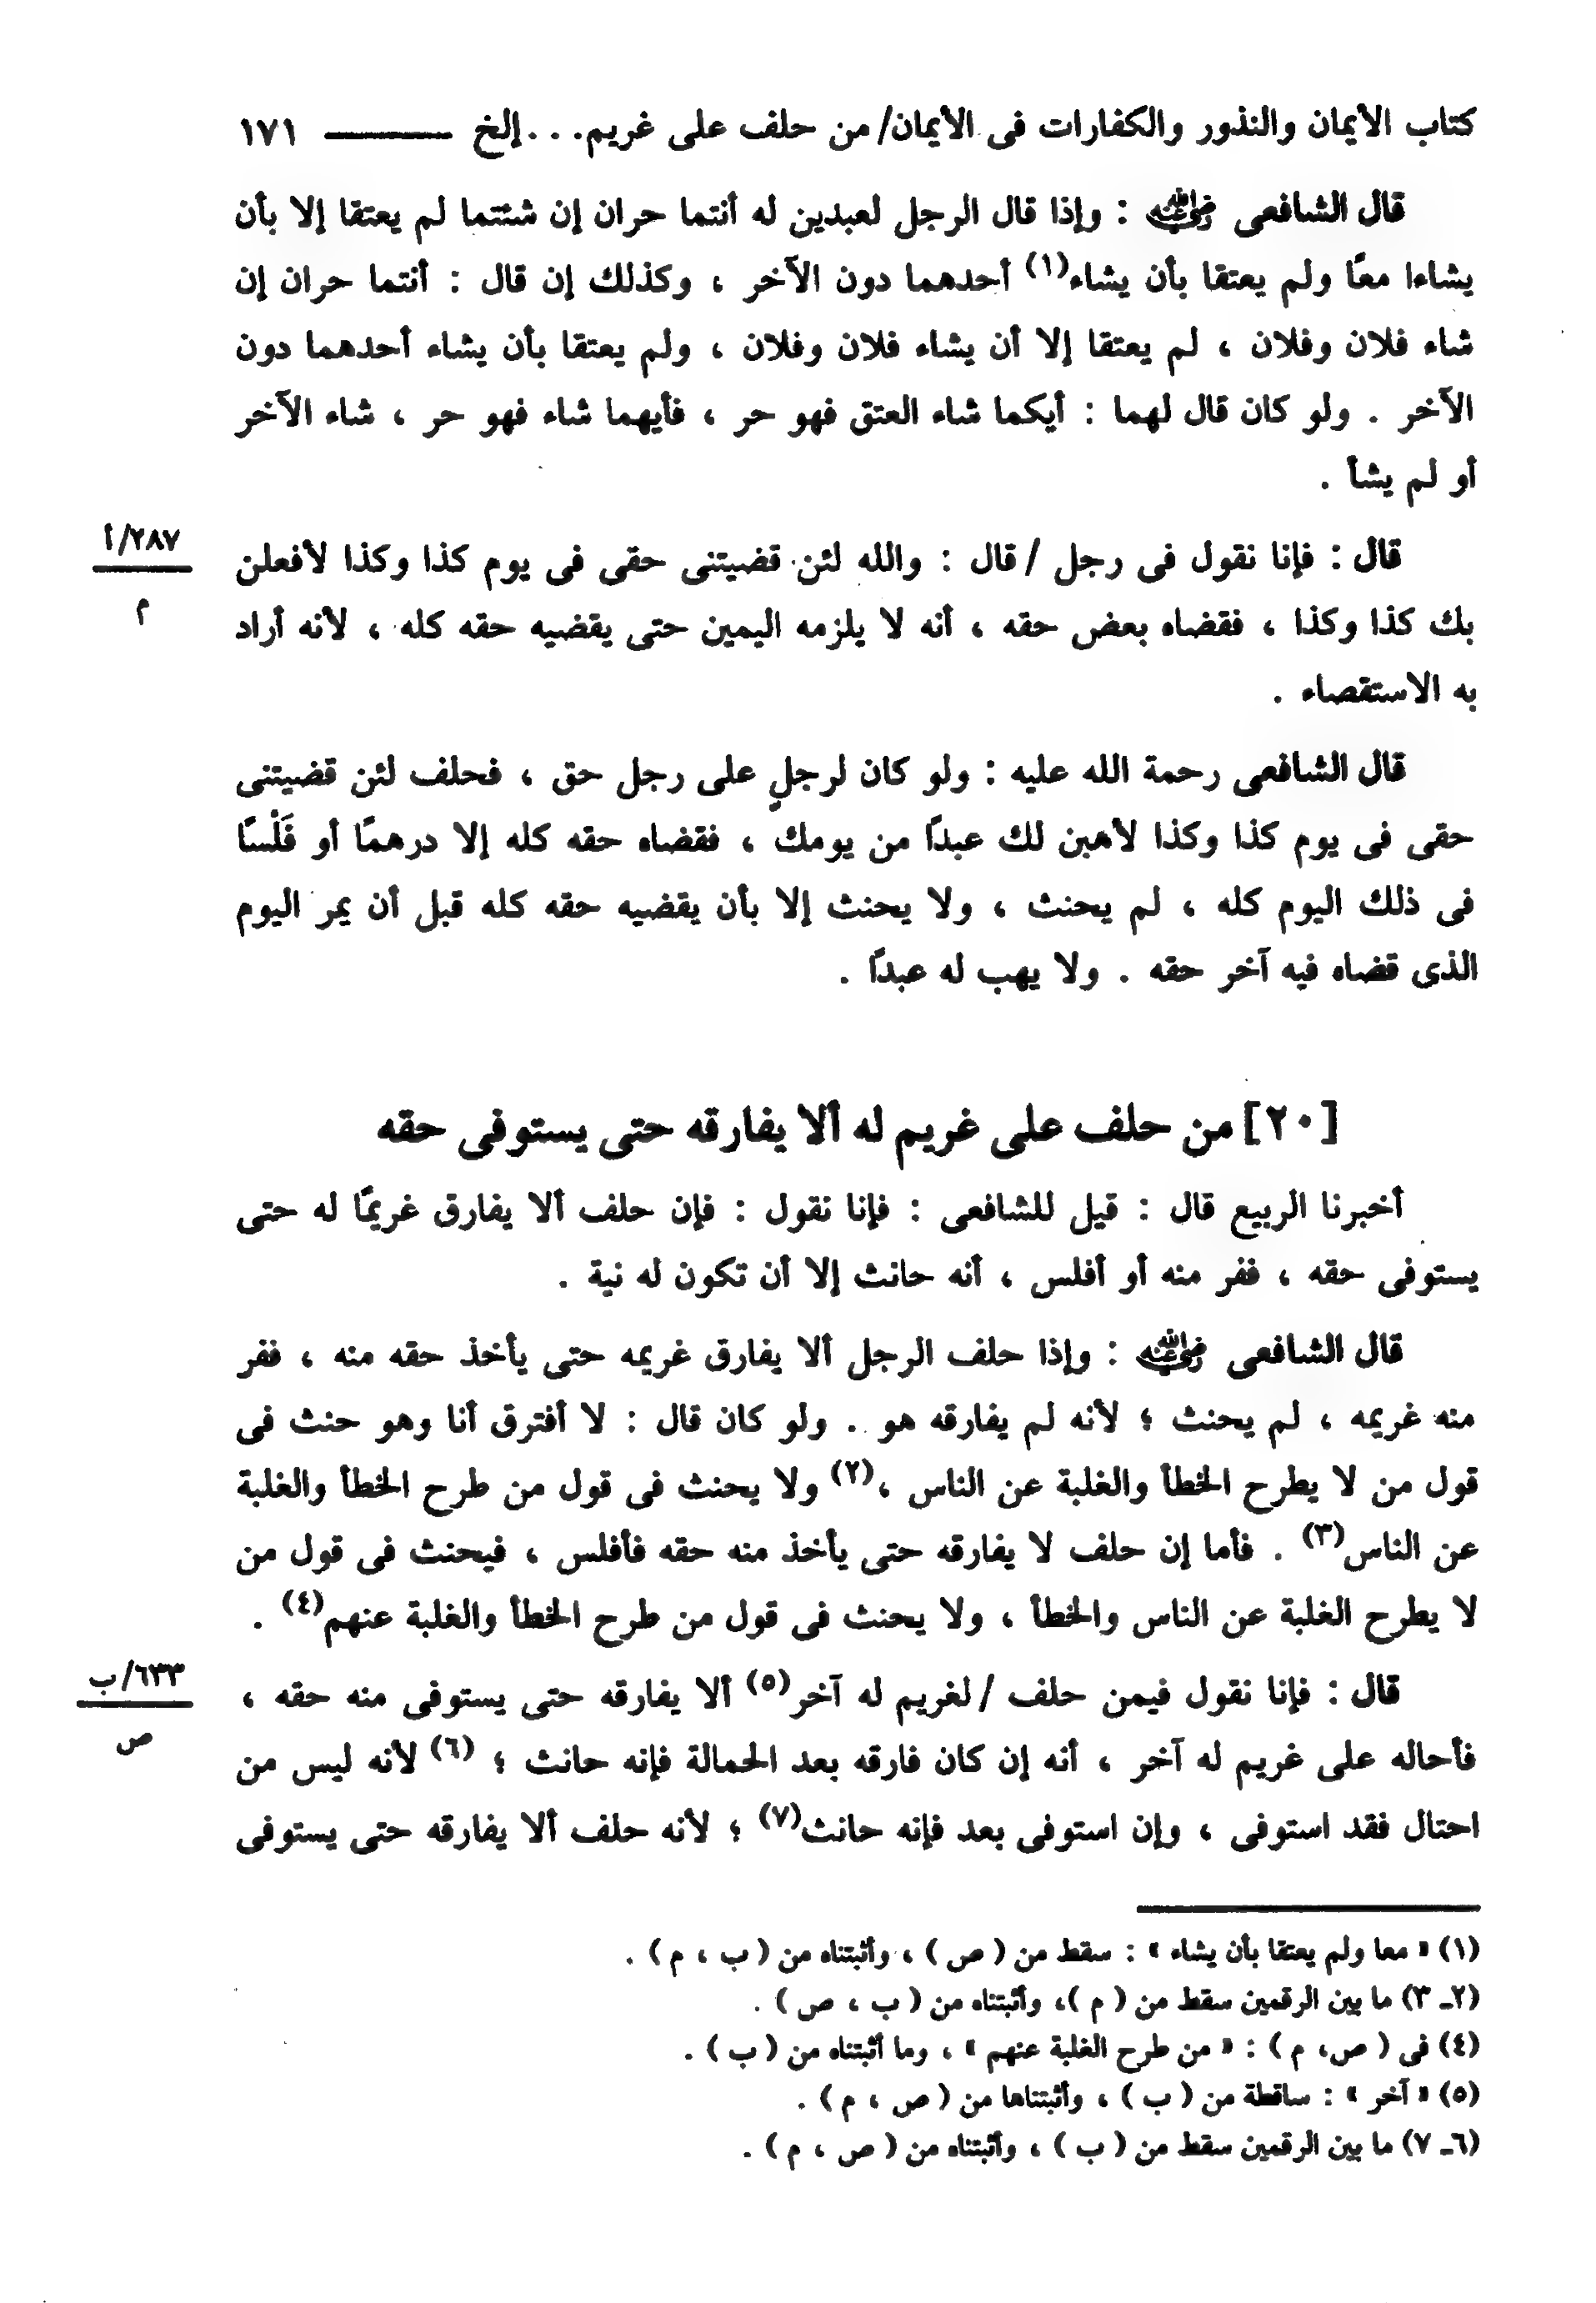 كتاب الأيمان والنذور والكفارات فى الأيمان/ من حلف على غريم. . . إلخ ــــــــــ ١٧١
قال الشافعى رضي الله عنه : وإذا قال الرجل لعبدين له أنتما حران إن شئتما لم يعتقا إلا بأن
يشاءا معًا ولم يعتقا بأن يشاء(١) أحدهما دون الآخر ، وكذلك إن قال : أنتما حران إن
شاء فلان وفلان ، لم يعتقا إلا أن يشاء فلان وفلان ، ولم يعتقا بأن يشاء أحدهما دون
الآخر . ولو كان قال لهما : أيكما شاء العتق فهو حر ، فأيهما شاء فهو حر ، شاء الآخر
أو لم يشأ .
٢٨٧/أ
م
قال : فإنا نقول فى رجل / قال : والله لئن قضيتنى حقى فى يوم كذا وكذا لأفعلن
بك كذا وكذا ، فقضاه بعض حقه ، أنه لا يلزمه اليمين حتى يقضيه حقه كله ، لأنه أراد
به الاستقصاء .
قال الشافعى رحمة الله عليه : ولو كان لرجلٍ على رجل حق ، فحلف لئن قضيتنى
حقى فى يوم كذا وكذا لأهبن لك عبدًا من يومك ، فقضاه حقه كله إلا درهمًا أو فَلْسًا
فى ذلك اليوم كله ، لم يحنث ، ولا يحنث إلا بأن يقضيه حقه كله قبل أن يمر اليوم
الذى قضاه فيه آخر حقه . ولا يهب له عبدًا .
[٢٠] من حلف على غريم له ألا يفارقه حتى يستوفى حقه
أخبرنا الربيع قال : قيل للشافعى : فإنا نقول : فإن حلف ألا يفارق غريمًا له حتى
يستوفى حقه ، ففر منه أو أفلس ، أنه حانث إلا أن تكون له نية .
قال الشافعى رضي الله عنه : وإذا حلف الرجل ألا يفارق غريمه حتى يأخذ حقه منه ، ففر
منه غريمه ، لم يحنث ؛ لأنه لم يفارقه هو . ولو كان قال : لا أفترق أنا وهو حنث فى
قول من لا يطرح الخطأ والغلبة عن الناس ،(٢) ولا يحنث فى قول من طرح الخطأ والغلبة
عن الناس(٣) . فأما إن حلف لا يفارقه حتى يأخذ منه حقه فأفلس ، فيحنث فى قول من
لا يطرح الغلبة عن الناس والخطأ ، ولا يحنث فى قول من طرح الخطأ والغلبة عنهم(٤) .
٦٣٣/ب
ص
قال : فإنا نقول فيمن حلف / لغريم له آخر(٥) ألا يفارقه حتى يستوفى منه حقه ،
فأحاله على غريم له آخر ، أنه إن كان فارقه بعد الحمالة فإنه حانث ؛ (٦) لأنه ليس من
احتال فقد استوفى ، وإن استوفى بعد فإنه حانث(٧) ؛ لأنه حلف ألا يفارقه حتى يستوفى
(١) « معا ولم يعتقا بأن يشاء » : سقط من ( ص ) ، وأثبتناه من ( ب ، م ) .
(٢ـ ٣) ما بين الرقمين سقط من ( م )، وأثبتناه من ( ب ، ص ) .
(٤) فى ( ص، م ) : « من طرح الغلبة عنهم » ، وما أثبتناه من ( ب ) .
(٥) « آخر » : ساقطة من ( ب ) ، وأثبتناها من ( ص ، م ) .
(٦ـ ٧) ما بين الرقمين سقط من ( ب ) ، وأثبتناه من ( ص ، م ) .